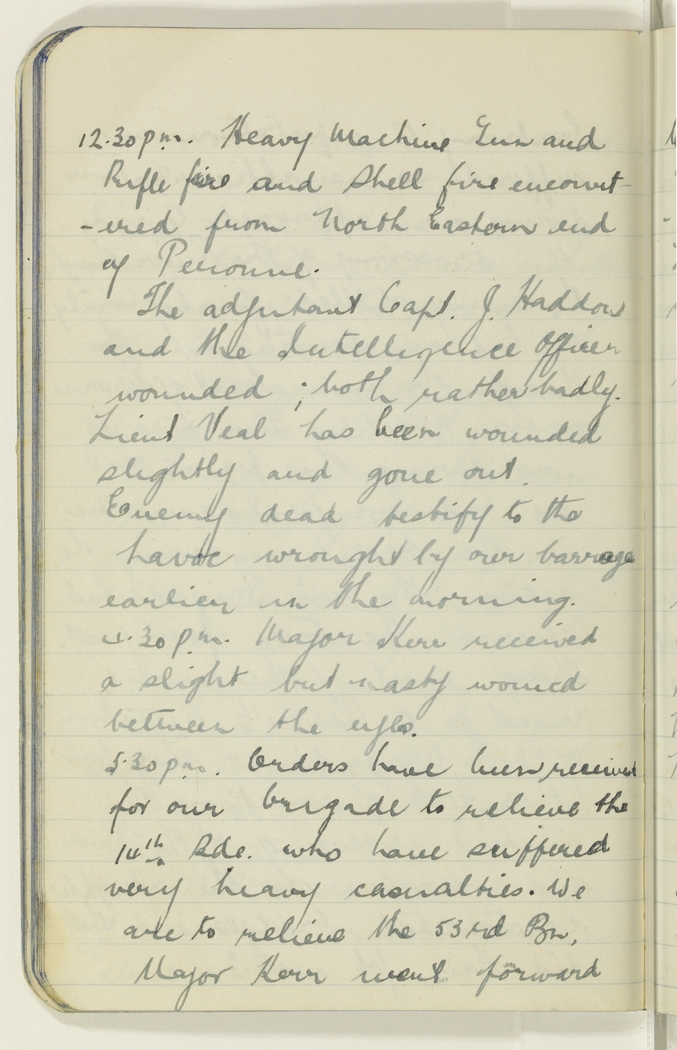 12.30 p.m. Heavy Machine Gun and
Rifle fire and Shell fire encount-
-ered from North Eastern end
of Peronne.
The adjutant Capt. J. Haddow
and the Intelligence Officer
wounded ; both rather badly.
Lieut Veal has been wounded
slightly and gone out.
Enemy dead testify to the
havoc wrought by our barrage
earlier in the morning.
4.30 p.m. Major Kerr received
a slight but nasty wound
between the eyes.
5.30 p.m. Orders have been received
for our brigade to relieve the
14th Bde. who have suffered
very heavy casualties. We
are to relieve the 53rd Bn.
Major Kerr went forward